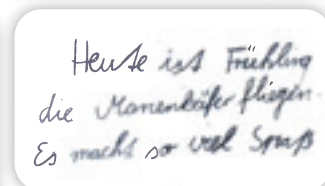 Heute ist Frühling
die Marienkäfer fliegen.
Es macht so viel Spaß